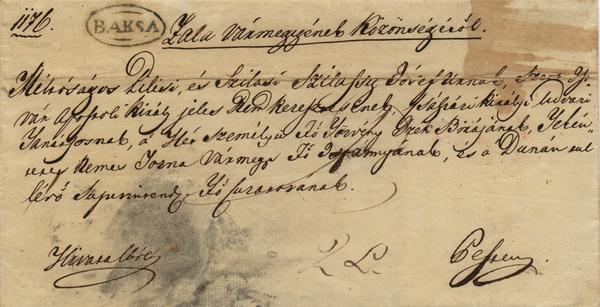 1176.
BAKSA
Zala Vármegyének Közönségéről.
Méltóságos Pilisi, és Szilasi Szilassy József Úrnak, Szent Ist
ván Apostoli Király jeles Rend Keresztesének, Császári Királyi Udvari
Tanácsosnak, a Hét Személyü Fő Törvény Szék Birájának, Tekén
tetes Nemes Torna Vármegye Fő Ispánnyának, és a Dunán
lévő Superintendz Fő Curatorának.
Hivatalból
Z L.
Pesten